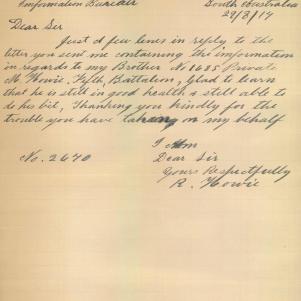 Information Bureau
South Australia
29/8/17
Dear Sir
Just a few lines in reply to the
letter you sent me containing the information
in regards to my Brother No 1685 Private
M. Howie, Fifth, Battalion, Glad to learn
that he is still in good health & still able to
do his bit, Thanking you kindly for the
trouble you have taken on my behalf
I Am
No. 2640
Dear Sir
Yours Respectfully
R. Howie